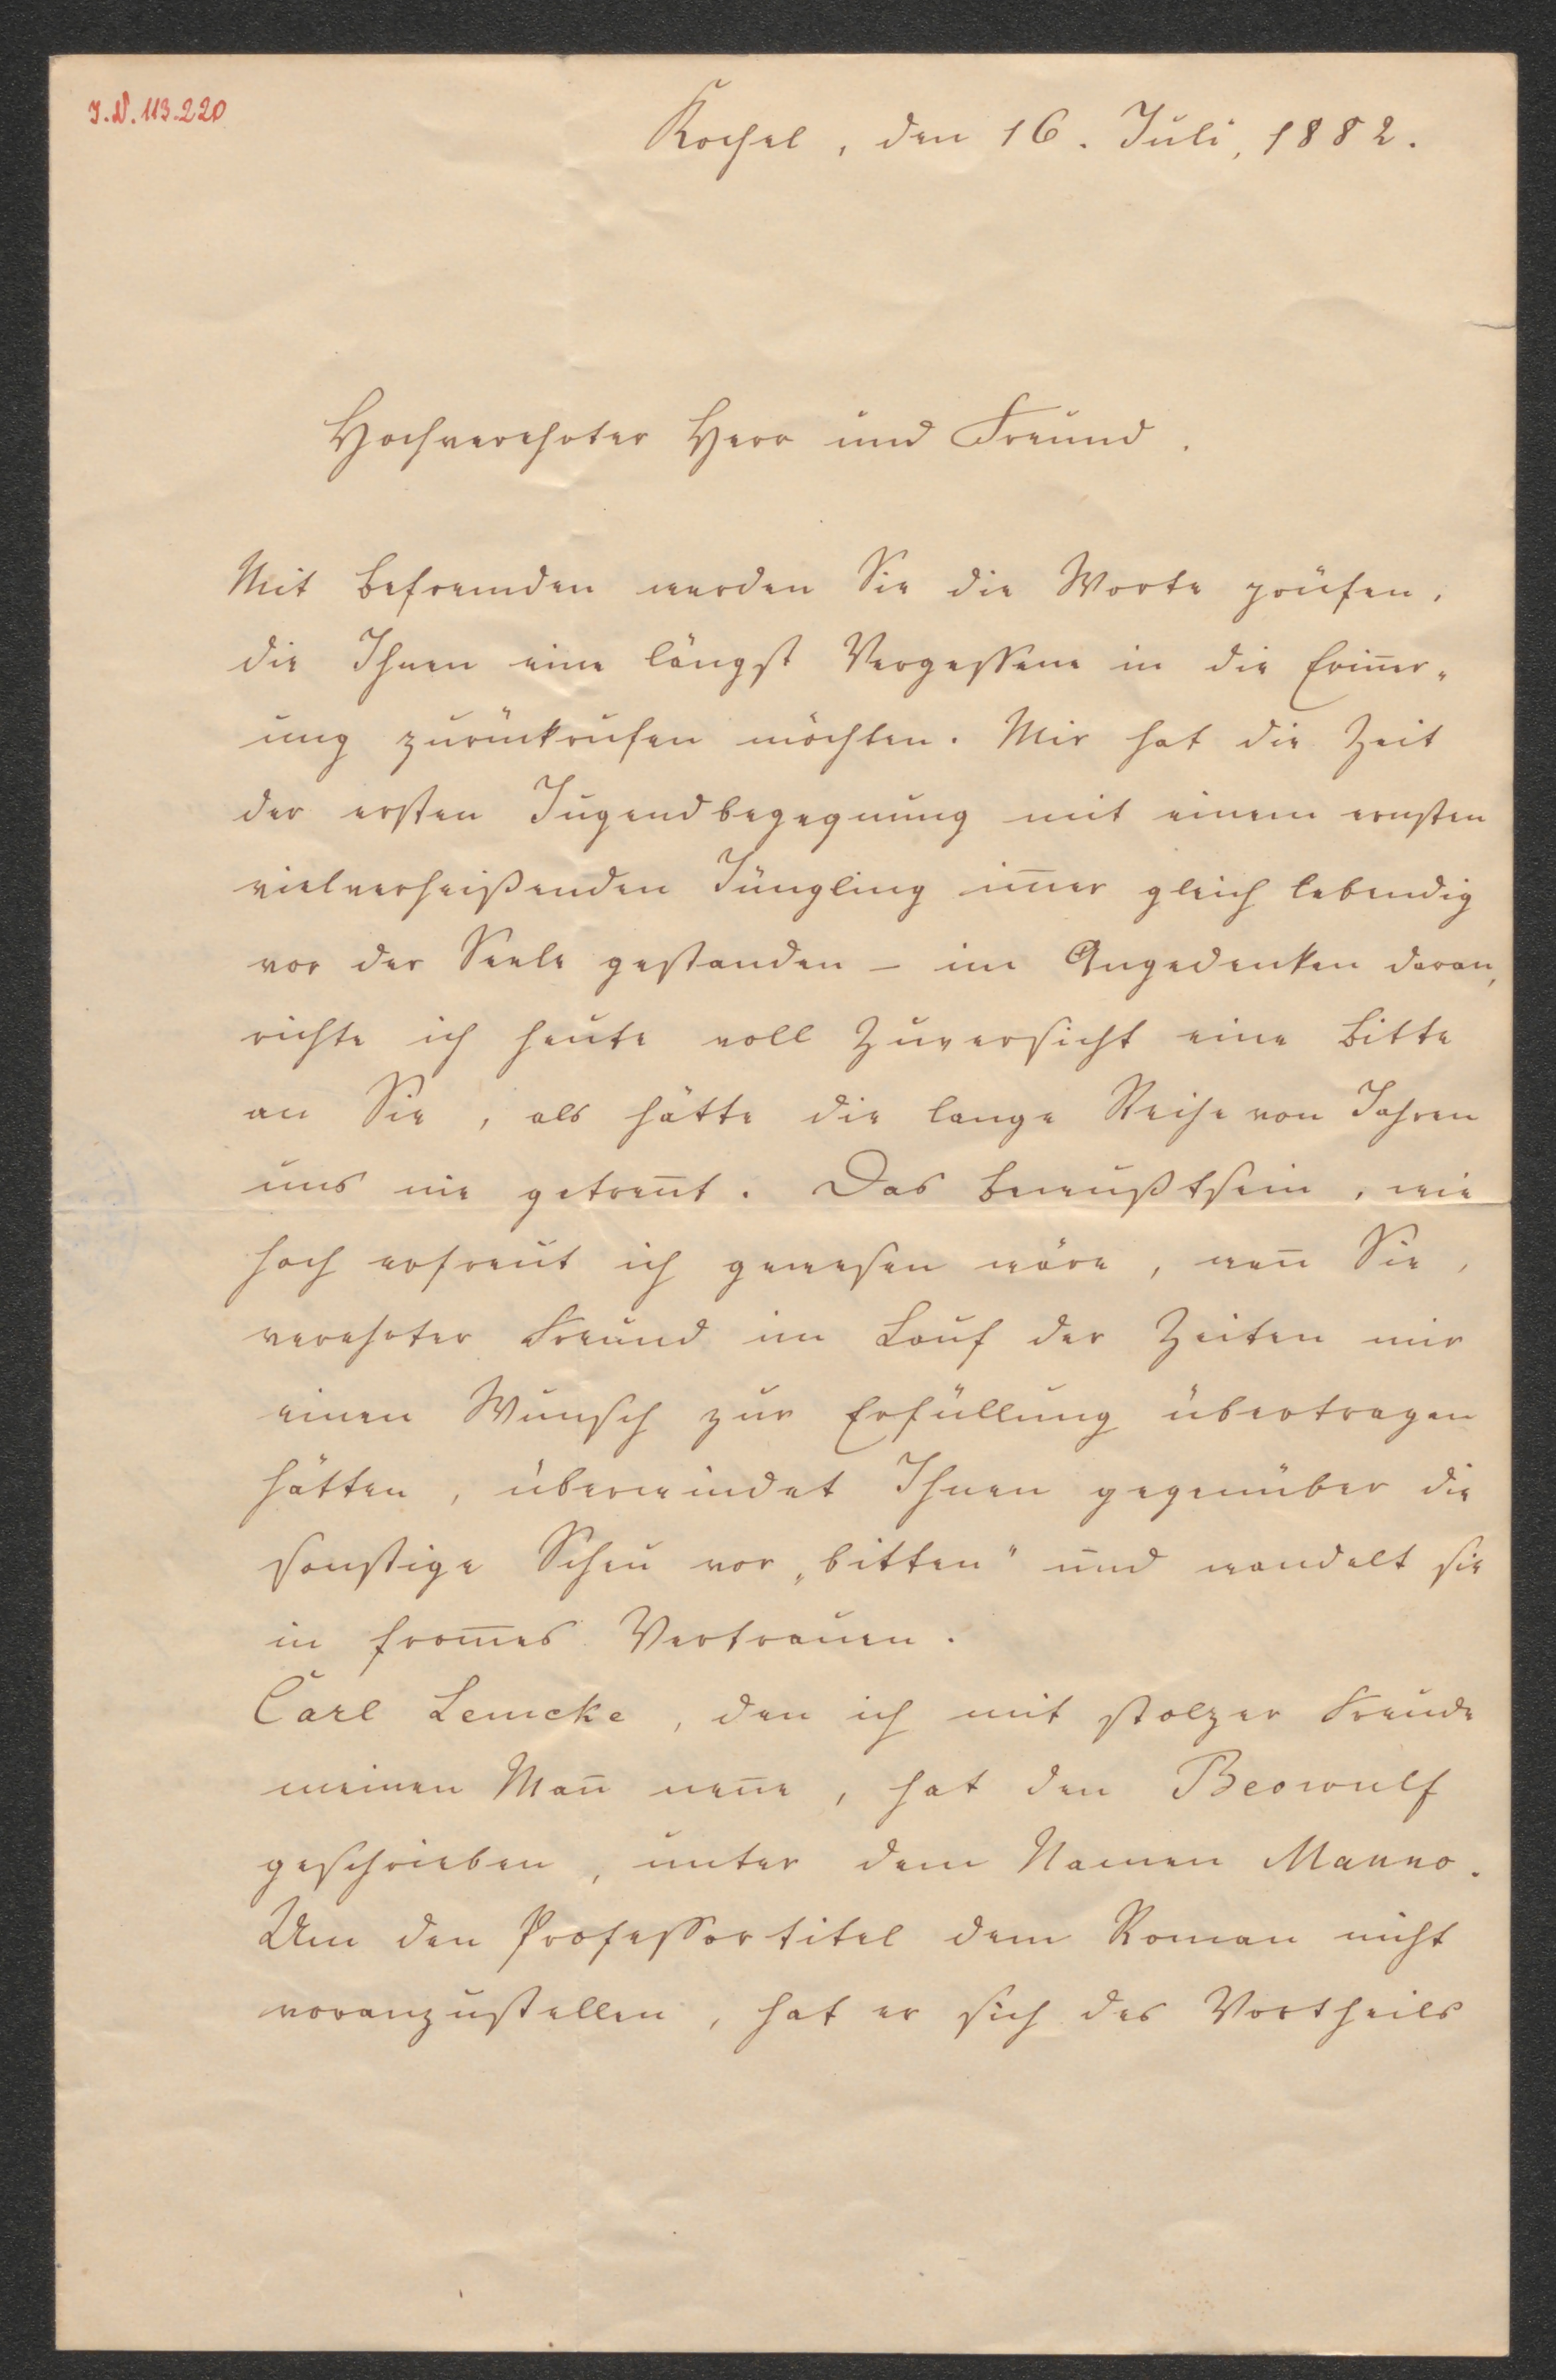 I.N. 113.220
Kochel, den 16. Juli, 1882.
Hochverehrter Herr und Freund.
Mit Befremden werden Sie die Worte prüfen,
die Ihnen eine längst Vergessene in die Erin̄er„
ung zurückrufen möchten. Mir hat die Zeit
der ersten Jugendbegegnung mit einem ernsten
vielverheißenden Jüngling im̄er gleich lebendig
vor der Seele gestanden – im Angedenken daran,
richte ich heute voll Zuversicht eine Bitte
an Sie, als hätte die lange Reihe von Jahren
uns nie getren̄t. Das Bewußtsein, wie
hoch erfreut ich gewesen wäre, wen̄ Sie,
verehrter Freund im Lauf der Zeiten mir
einen Wunsch zur Erfüllung übertragen
hätten, überwindet Ihnen gegenüber die
sonstige Scheu vor „bitten" und wandelt sie
in from̄es Vertrauen.
Carl Lemcke, den ich mit stolzer Freude
meinen Man̄ nen̄e, hat den Beowulf
geschrieben, unter dem Namen Manno.
Um den Professortitel dem Roman nicht
voranzustellen, hat er sich des Vortheils